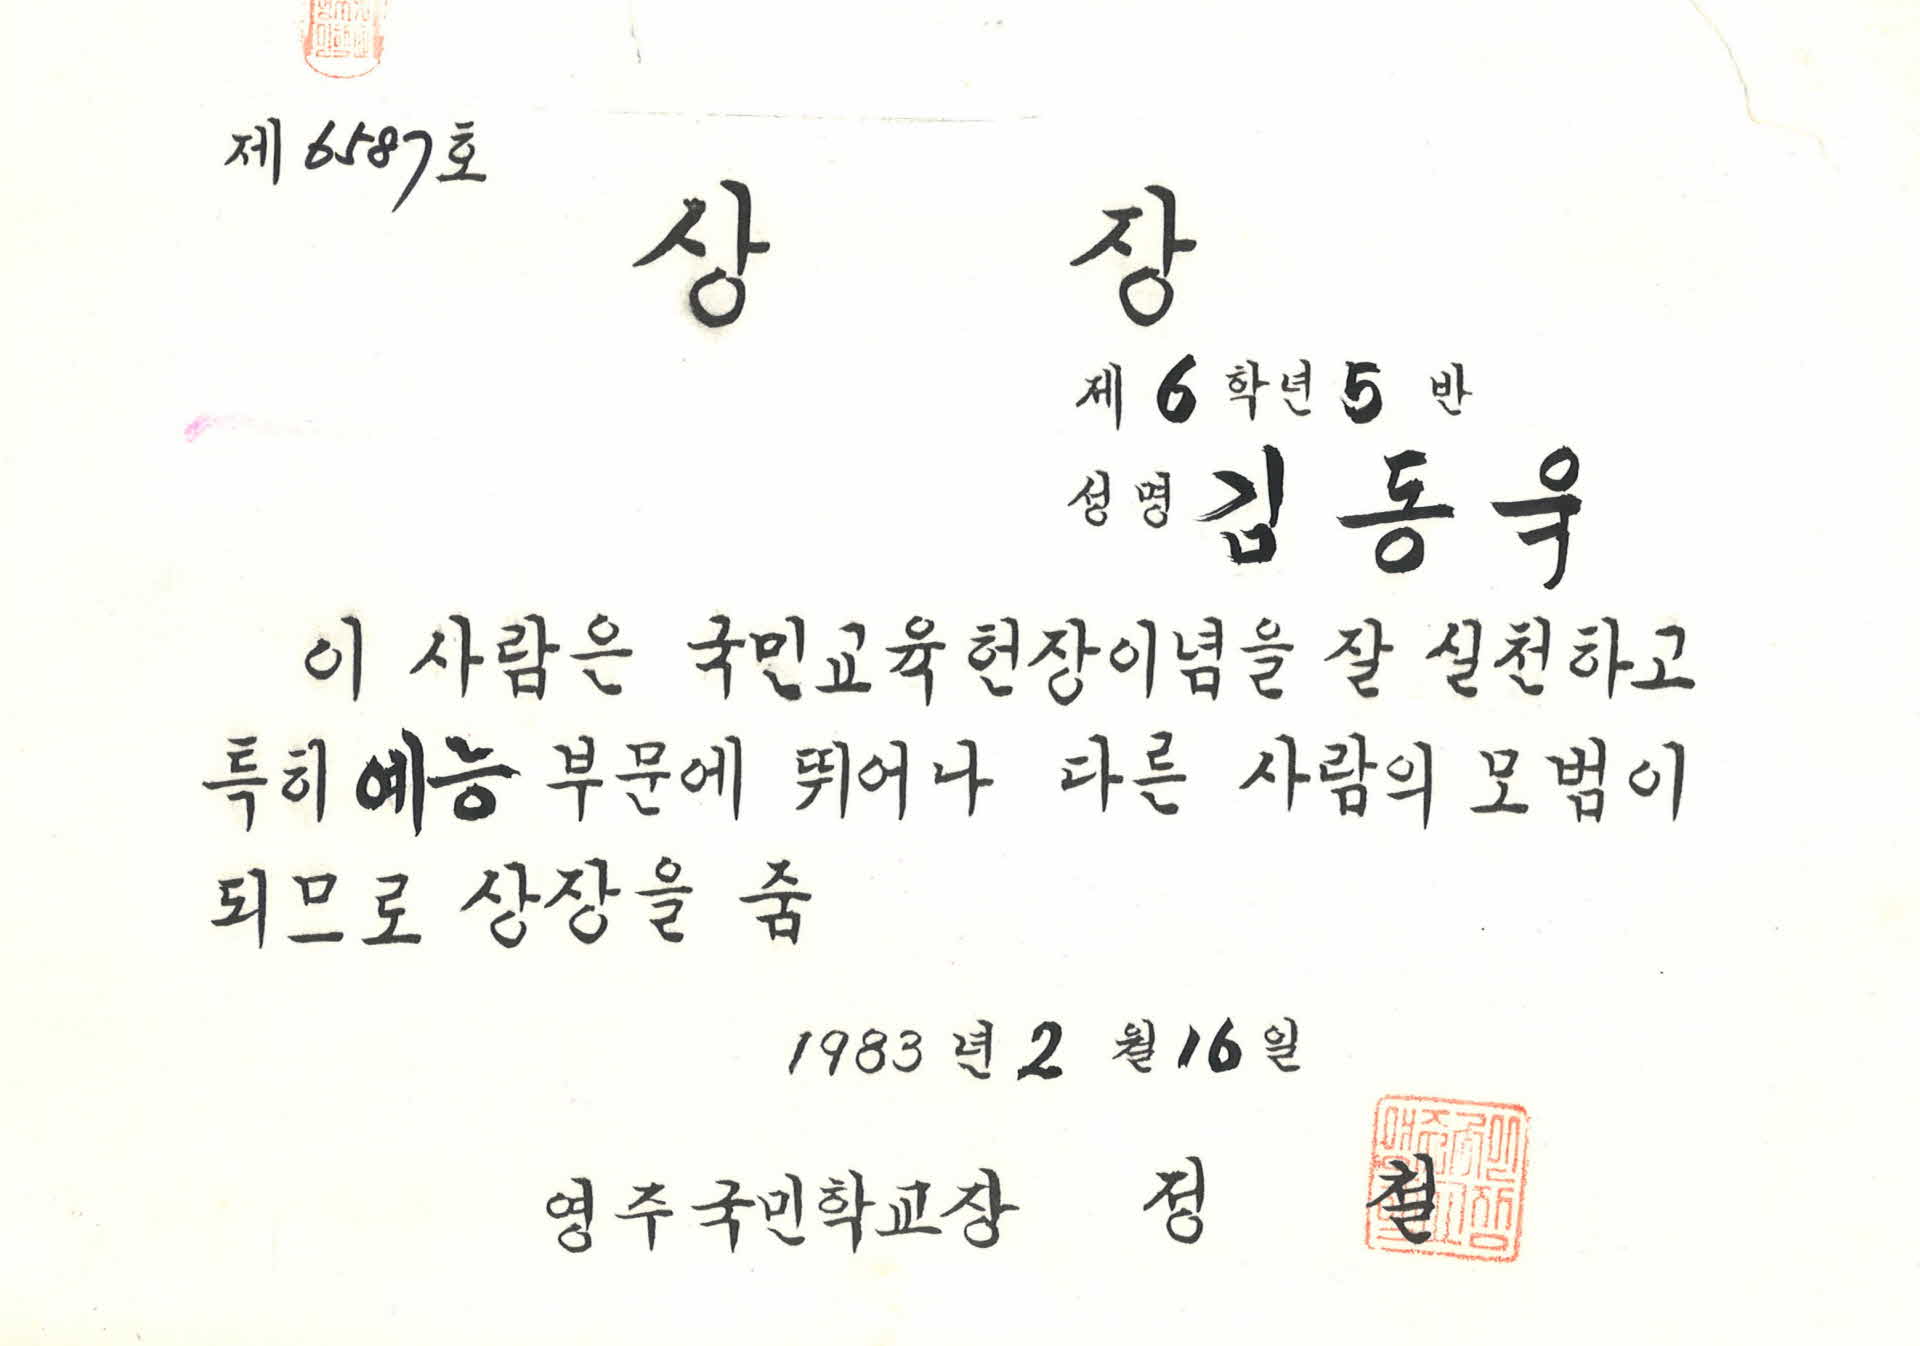 제 6587 호
상 장
제 6 학년 5 반
성명 김 동 욱
이 사람은 국민교육헌장이념을 잘 실천하고
특히 예능 부문에 뛰어나 다른 사람의 모범이
되므로 상장을 줌
1983 년 2 월 16 일
영주국민학교장 정 철